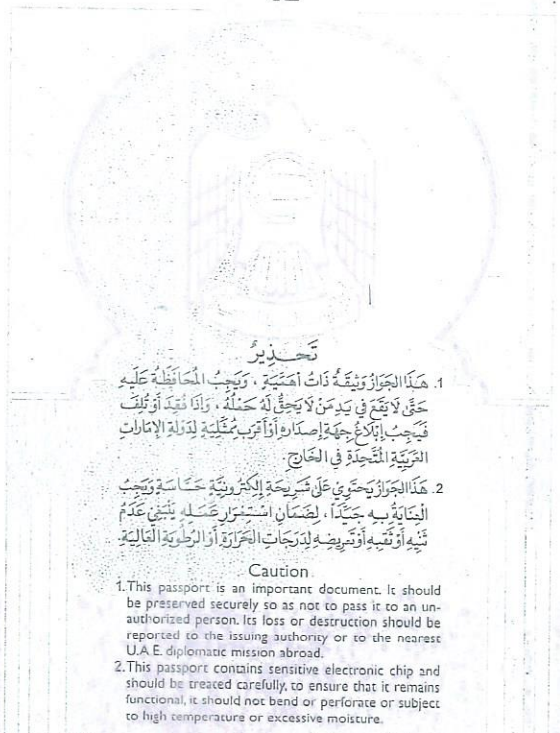 تَحْذِيرٌ
1. هَذَا الجَوَازُ وَثِيقَةٌ ذَاتُ أَهَمِّيَةٍ ، وَيَجِبُ المُحَافَظَةُ عَلَيْهِ
حَتَّى لَا يَقَعَ فِي يَدِ مَنْ لَا يَحِقُّ لَهُ حَمْلُهُ ، وَإِذَا فُقِدَ أَوْ تُلِفَ
فَيَجِبُ إِبْلَاغُ جِهَةِ إِصْدَارِهِ أَوْ أَقْرَبِ مُمَثِّلِيَةٍ لِدَوْلَةِ الإِمَارَاتِ
العَرَبِيَّةِ المُتَّحِدَةِ فِي الخَارِجِ.
2. هَذَا الجَوَازُ يَحْتَوِي عَلَى شَرِيحَةٍ إِلِكْتِرُونِيَّةٍ حَسَّاسَةٍ وَيَجِبُ
الْعِنَايَةُ بِهِ جَيِّدًا ، لِضَمَانِ اسْتِمْرَارِ عَمَلِهِ يَنْبَغِي عَدَمُ
ثَنْيِهِ أَوْ ثَقْبِهِ أَوْ تَعْرِيضِهِ لِدَرَجَاتِ الحَرَارَةِ أَوِ الرُّطُوبَةِ الْعَالِيَةِ.
Caution
1. This passport is an important document. It should
be preserved securely so as not to pass it to an un-
authorized person. Its loss or destruction should be
reported to the issuing authority or to the nearest
U.A.E. diplomatic mission abroad.
2. This passport contains sensitive electronic chip and
should be treated carefully, to ensure that it remains
functional, it should not bend or perforate or subject
to high temperature or excessive moisture.